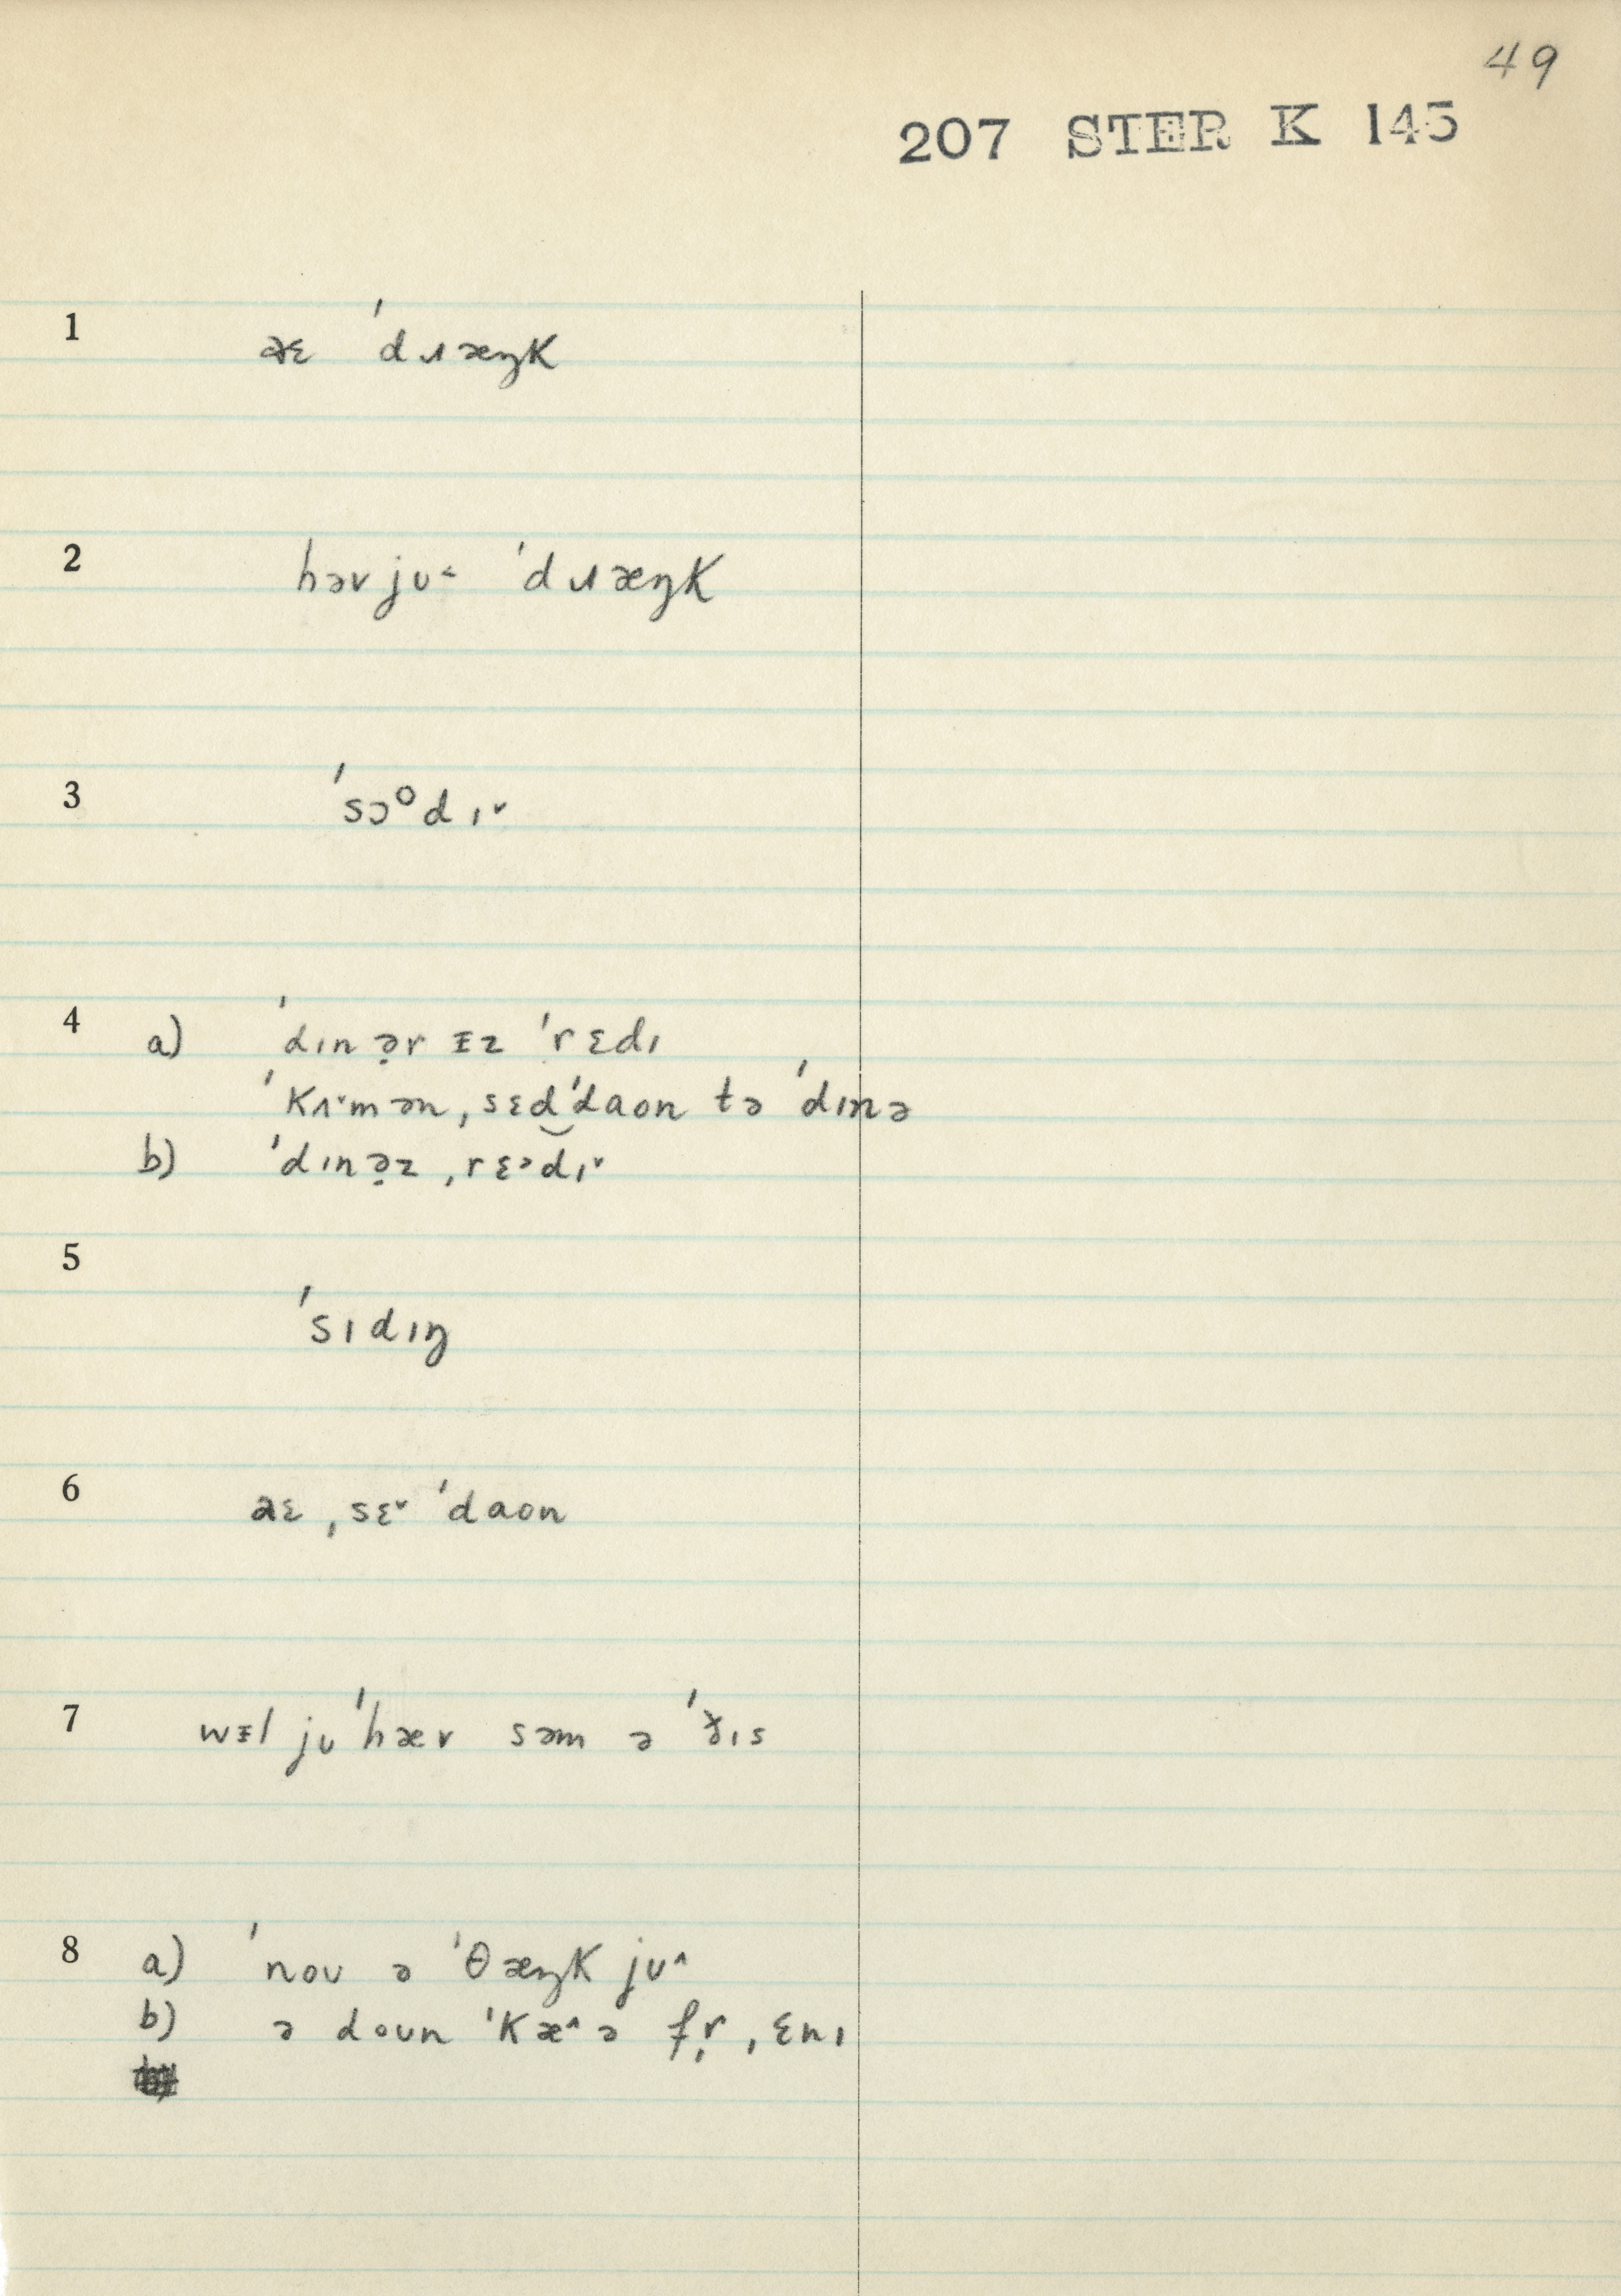 49
207 STER K 145
1 aɛ ˈdɹæŋk
2 həvjʊ˂ ˈdɹæŋk
3 ˈsɔᵒdɪˇ
4 a) ˈdɪnə̣r ɪz ˈrɛdɪ
ˈkʌˇmən ˌsɛd‿ˈdaon tə ˈdɪnə
b) ˈdɪnə̣z ˌrɛ˃dɪˇ
5 ˈsɪdɪŋ
6 aɛ ˌsɛˇ ˈdaon
7 wɪl jʊ ˈhæv səm ə ˈðɪs
8 a) ˈnoʊ ə ˈθæŋk jʊ˄
b) ə doʊn ˈkæ˄ə fr̩ ˌɛnɪ